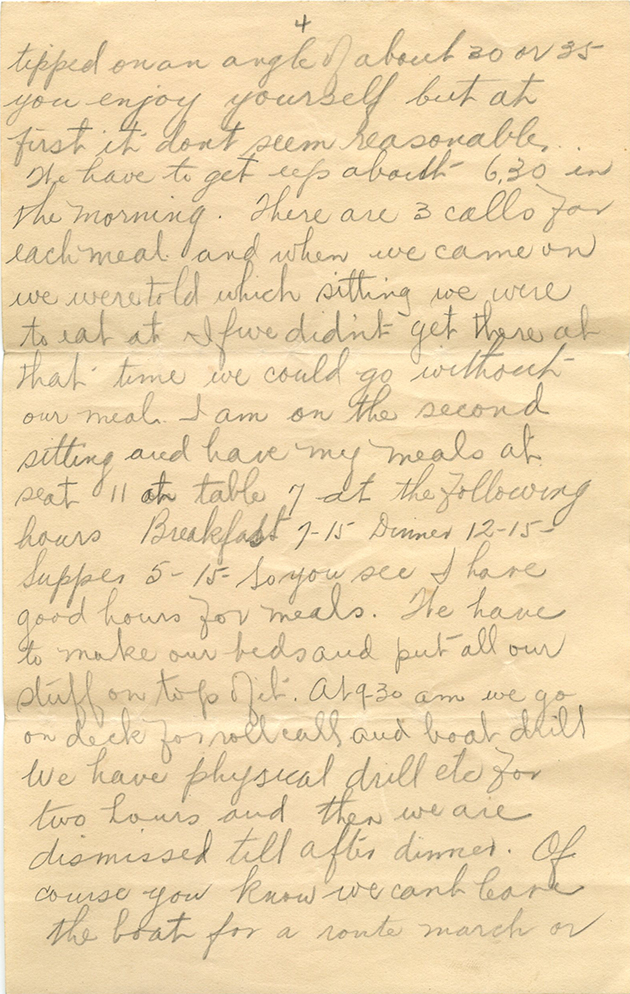 4
tipped on an angle of about 30 or 35
you enjoy yourself but at
first it dont seem reasonable.
We have to get up about 6,30 in
the morning. There are 3 calls for
each meal and when we came on
we were told which sitting we were
to eat at If we didn't get there at
that time we could go without
our meal. I am on the second
sitting and have my meals at
seat 11 at table 7 at the following
hours Breakfast 7-15 Dinner 12-15-
Supper 5-15- So you see I have
good hours for meals. We have
to make our beds and put all our
stuff on top of it. At 9-30 am we go
on deck for roll call and boat drill
We have physical drill etc for
two hours and then we are
dismissed till after dinner. Of
course you know we cant leave
the boat for a route march or